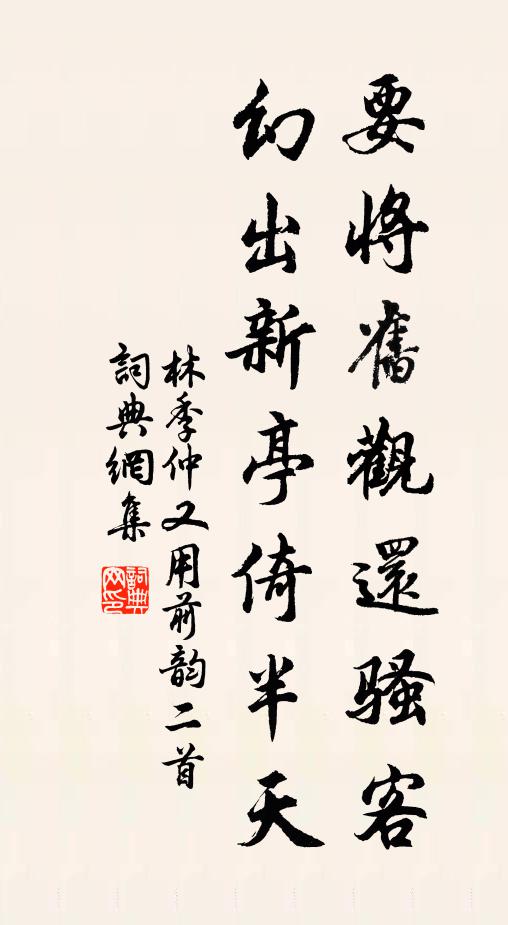 要將舊觀還騷客
幻出新亭倚半天
林季仲又用前韵二首
詞典網集
詞典网印